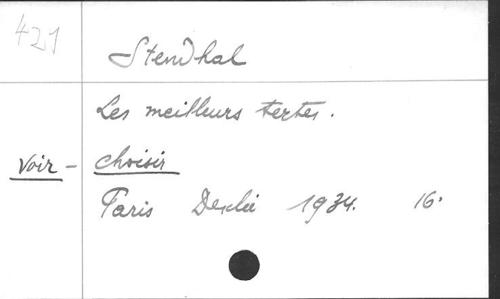 421
Stendhal
Les meilleurs textes.
Voir - choisir
Paris Desclée 1934. 16°